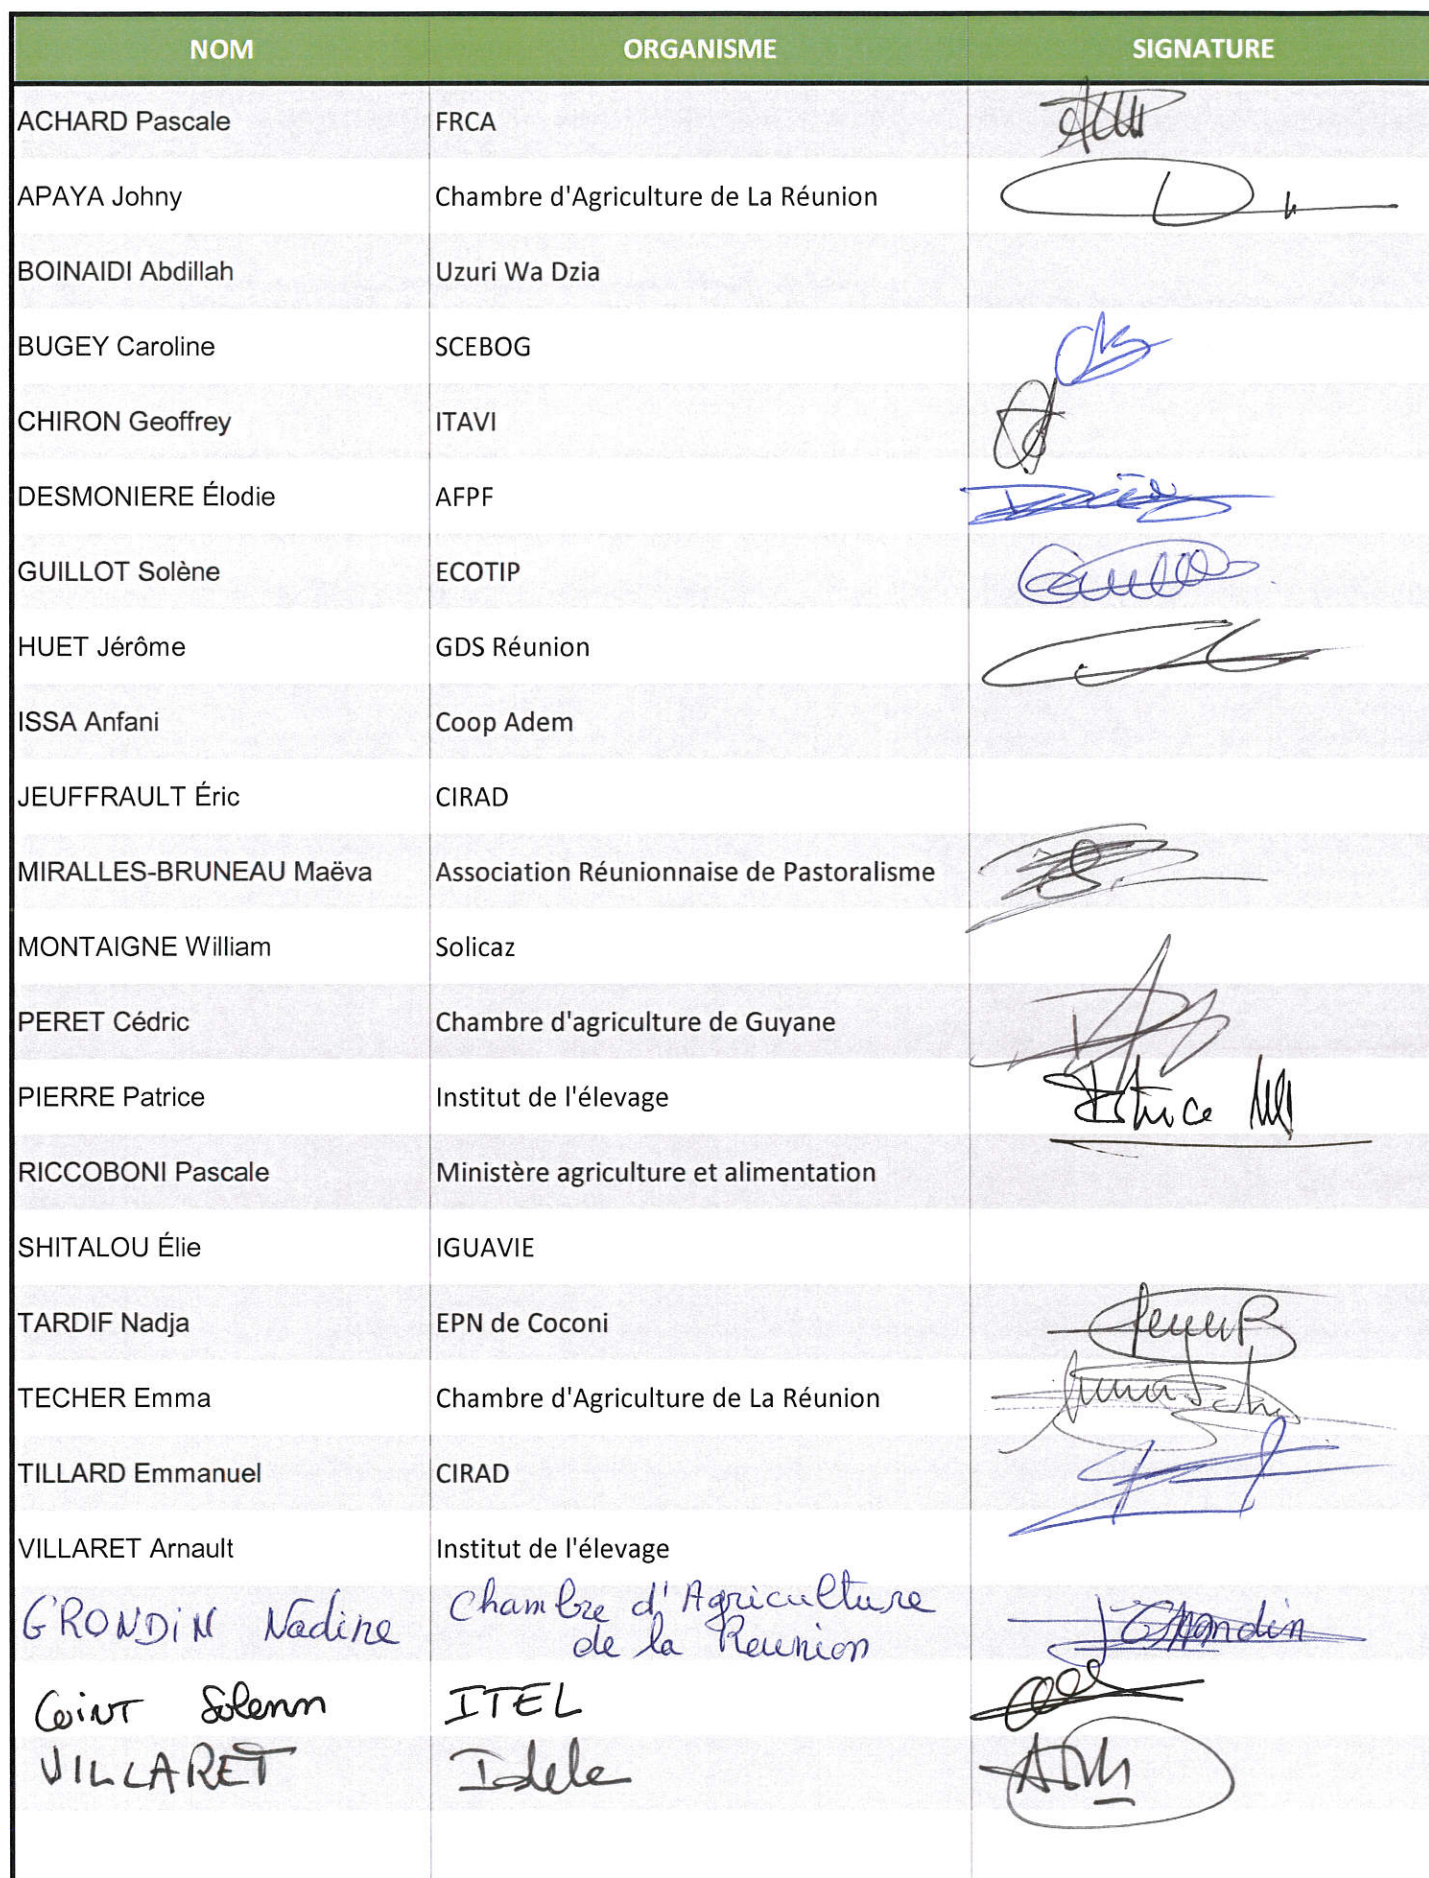 NOM ORGANISME SIGNATURE
ACHARD Pascale FRCA
APAYA Johny Chambre d'Agriculture de La Réunion
BOINAIDI Abdillah Uzuri Wa Dzia
BUGEY Caroline SCEBOG
CHIRON Geoffrey ITAVI
DESMONIERE Élodie AFPF
GUILLOT Solène ECOTIP
HUET Jérôme GDS Réunion
ISSA Anfani Coop Adem
JEUFFRAULT Éric CIRAD
MIRALLES-BRUNEAU Maëva Association Réunionnaise de Pastoralisme
MONTAIGNE William Solicaz
PERET Cédric Chambre d'agriculture de Guyane
PIERRE Patrice Institut de l'élevage
RICCOBONI Pascale Ministère agriculture et alimentation
SHITALOU Élie IGUAVIE
TARDIF Nadja EPN de Coconi
TECHER Emma Chambre d'Agriculture de La Réunion
TILLARD Emmanuel CIRAD
VILLARET Arnault Institut de l'élevage
GRONDIN Nadine Chambre d'Agriculture
de la Reunion Grondin
Solenn ITEL
VILLARET Idele